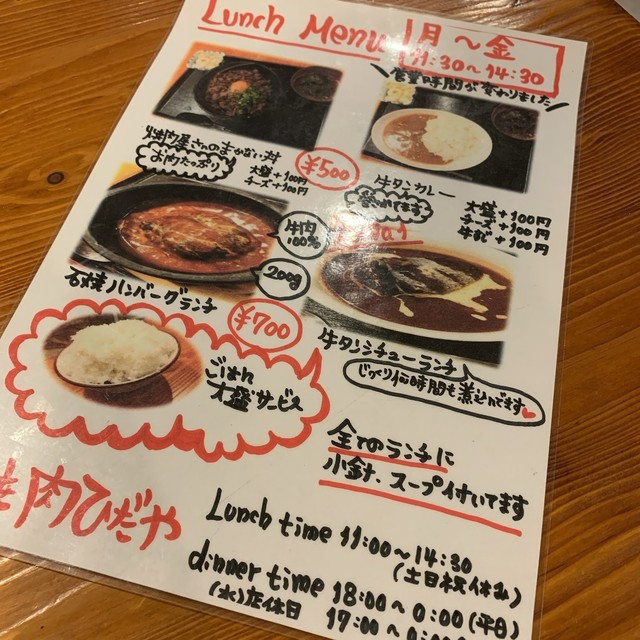 Lunch Menu
月〜金
11:30〜14:30
営業時間が変わりました
焼肉屋さんのまかない丼
お肉たっぷり
大盛+100円
チーズ+100円
¥500
牛タンカレー
大盛+100円
チーズ+100円
牛すじ+100円
牛肉
100%
200g
石焼ハンバーグランチ
¥700
牛タンシチューランチ
じっくり何時間も煮込んでます
ごはん
大盛サービス
全てのランチに
小鉢、スープ付いてます
肉ひだや
Lunch time 11:00〜14:30
(土日祝休み)
dinner time 18:00〜0:00(平日)
(水)店休日 17:00〜